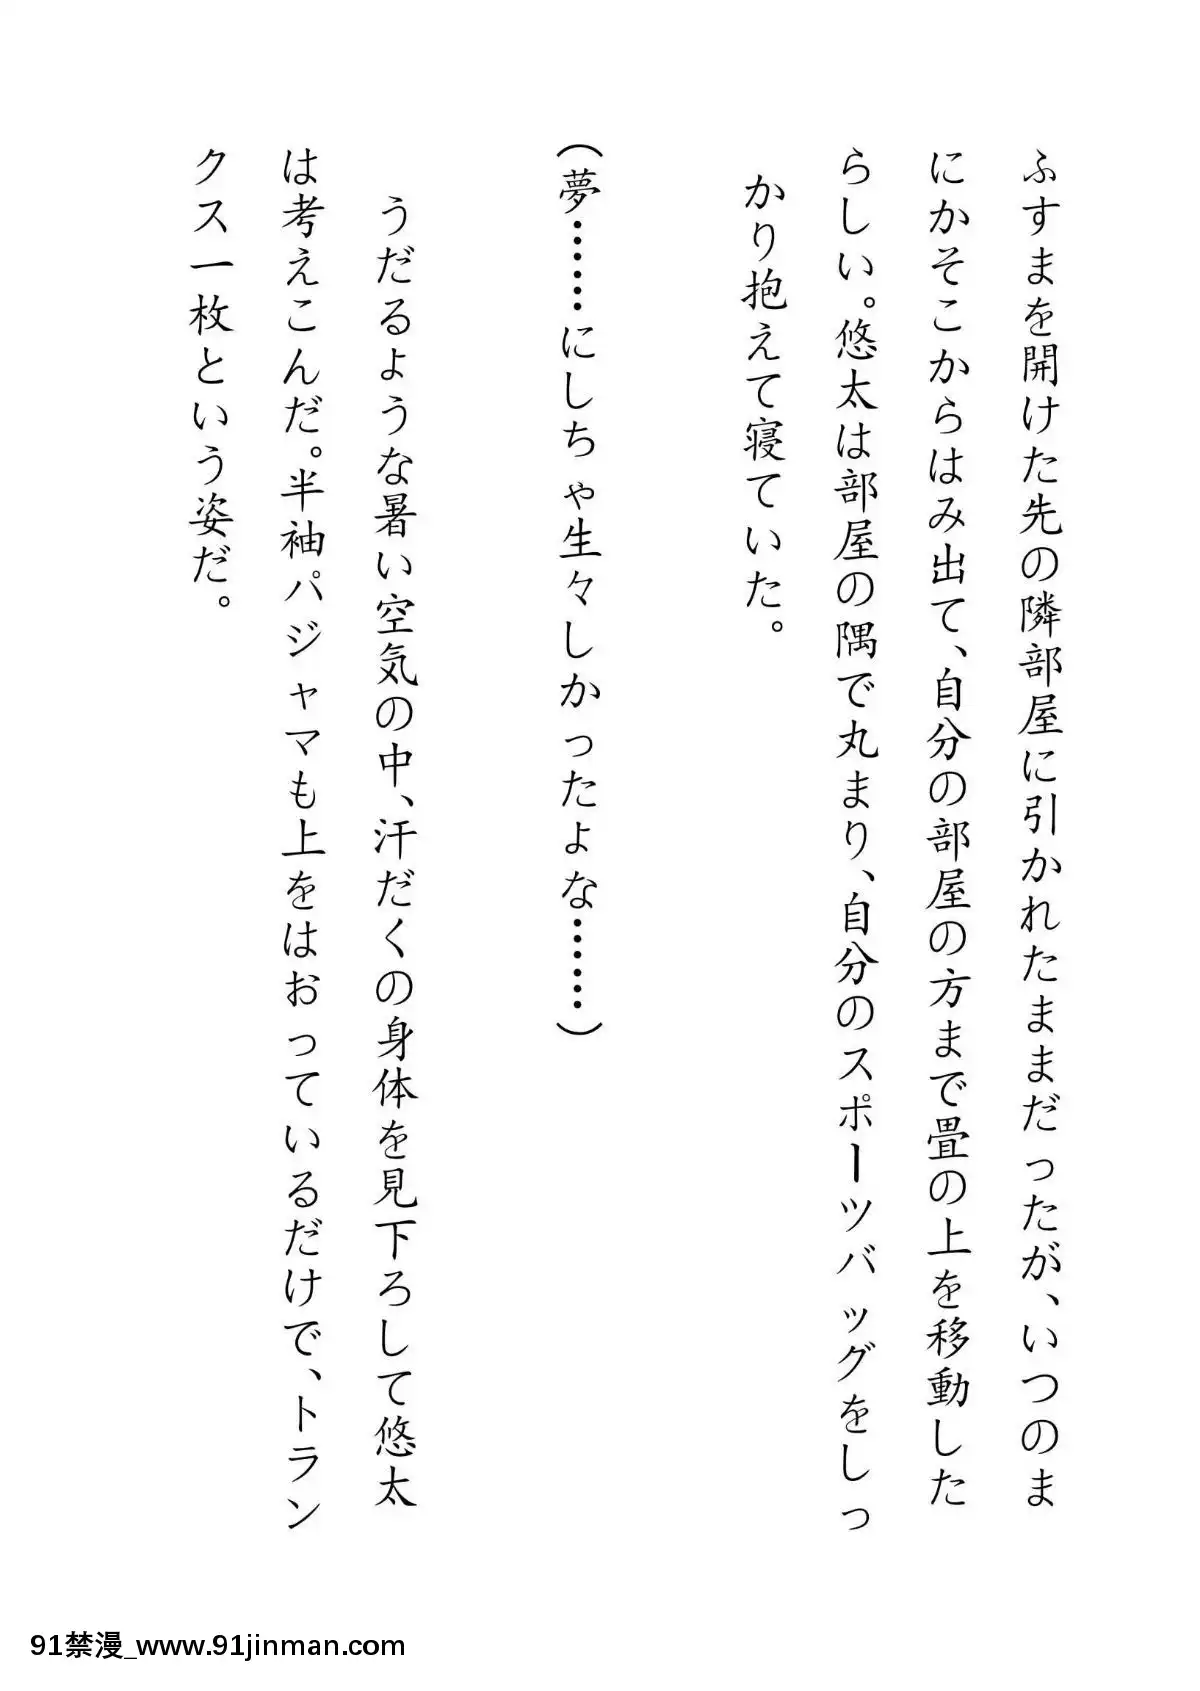 ふすまを開けた先の隣部屋に引かれたままだったが、いつのま
にかそこからはみ出て、自分の部屋の方まで畳の上を移動した
らしい。悠太は部屋の隅で丸まり、自分のスポーツバッグをしっ
かり抱えて寝ていた。
(夢……にしちゃ生々しかったよな……)
うだるような暑い空気の中、汗だくの身体を見下ろして悠太
は考えこんだ。半袖パジャマも上をはおっているだけで、トラン
クス一枚という姿だ。
91禁漫_www.91jinman.com